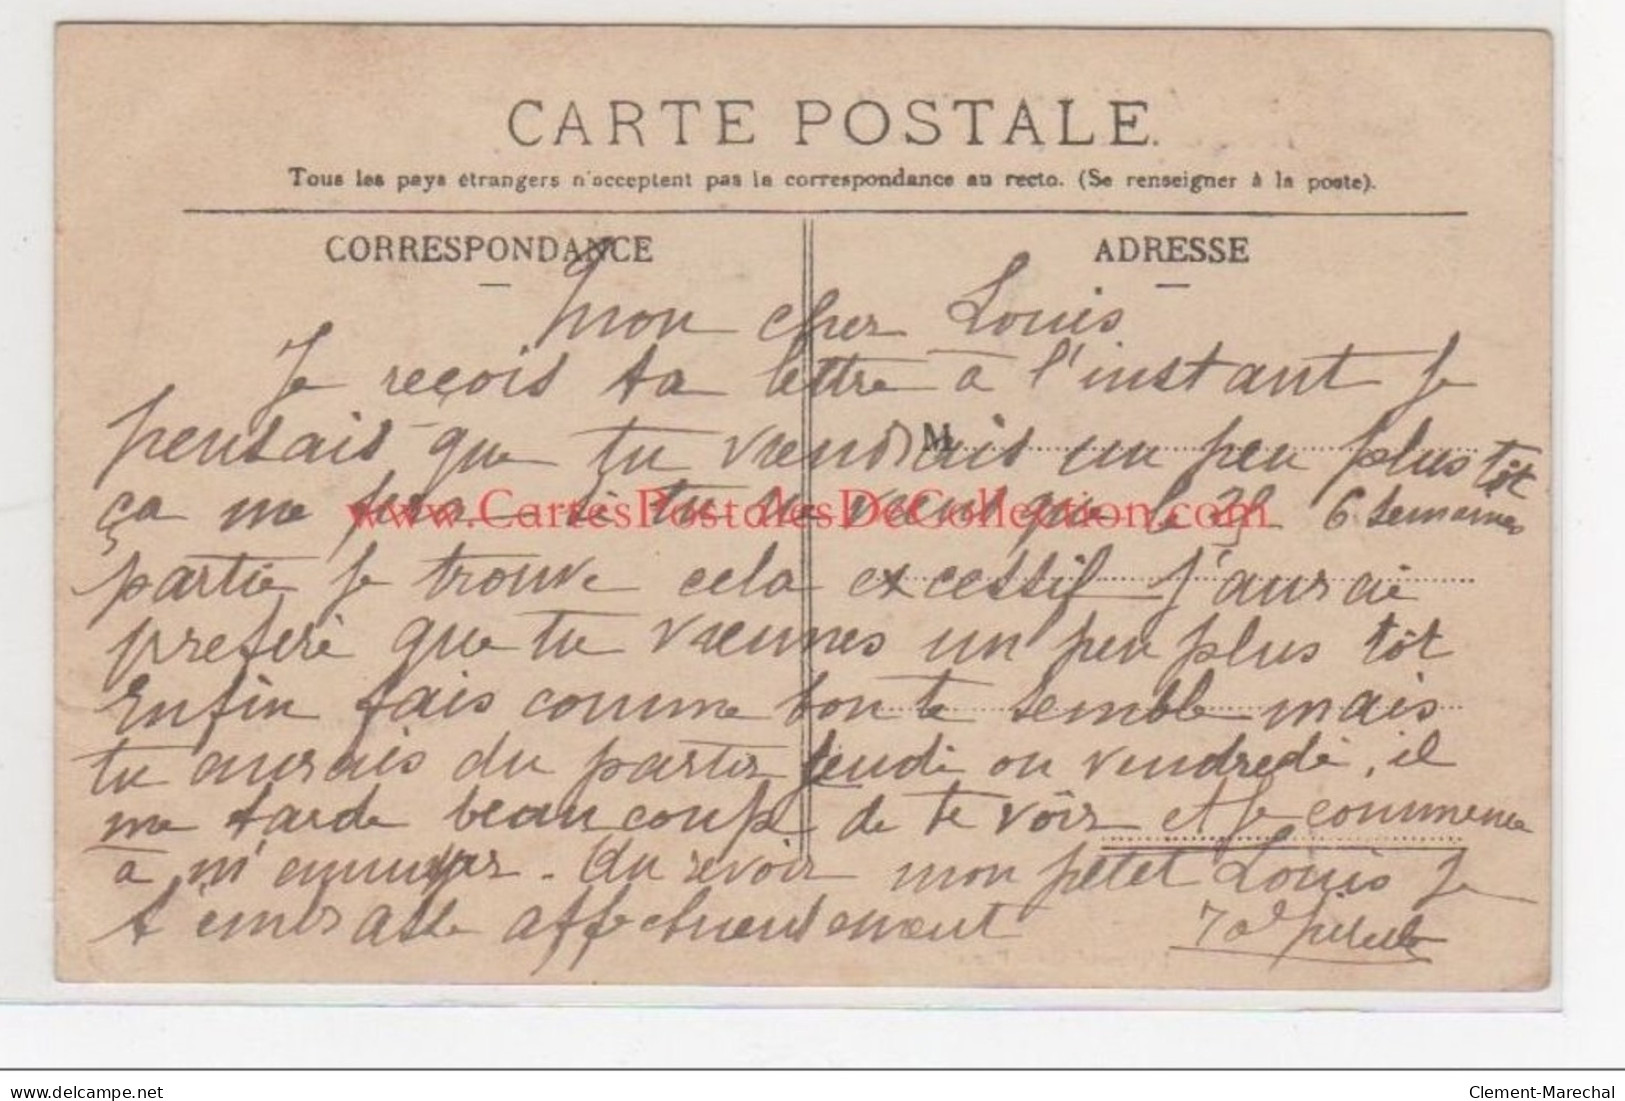 CARTE POSTALE.
Tous les pays étrangers n'acceptent pas la correspondance au recto. (Se renseigner à la poste).
CORRESPONDANCE
ADRESSE
Mon cher Louis
Je reçois ta lettre à l'instant Je
pensais que tu viendrais un peu plus tôt
M
ça me fera si tu ne viens que le 6 semaines
www.CartesPostalesDeCollection.com
partie je trouve cela excessif J'aurai
preferé que tu viennes un peu plus tôt
Enfin fais comme bon te semble mais
tu aurais du partir jeudi ou vendredi, il
me tarde beaucoup de te voir et je commence
à m'ennuyer. Au revoir mon petit Louis Je
t'embrasse affectueusement
delcampe.net
Clement-Marechal